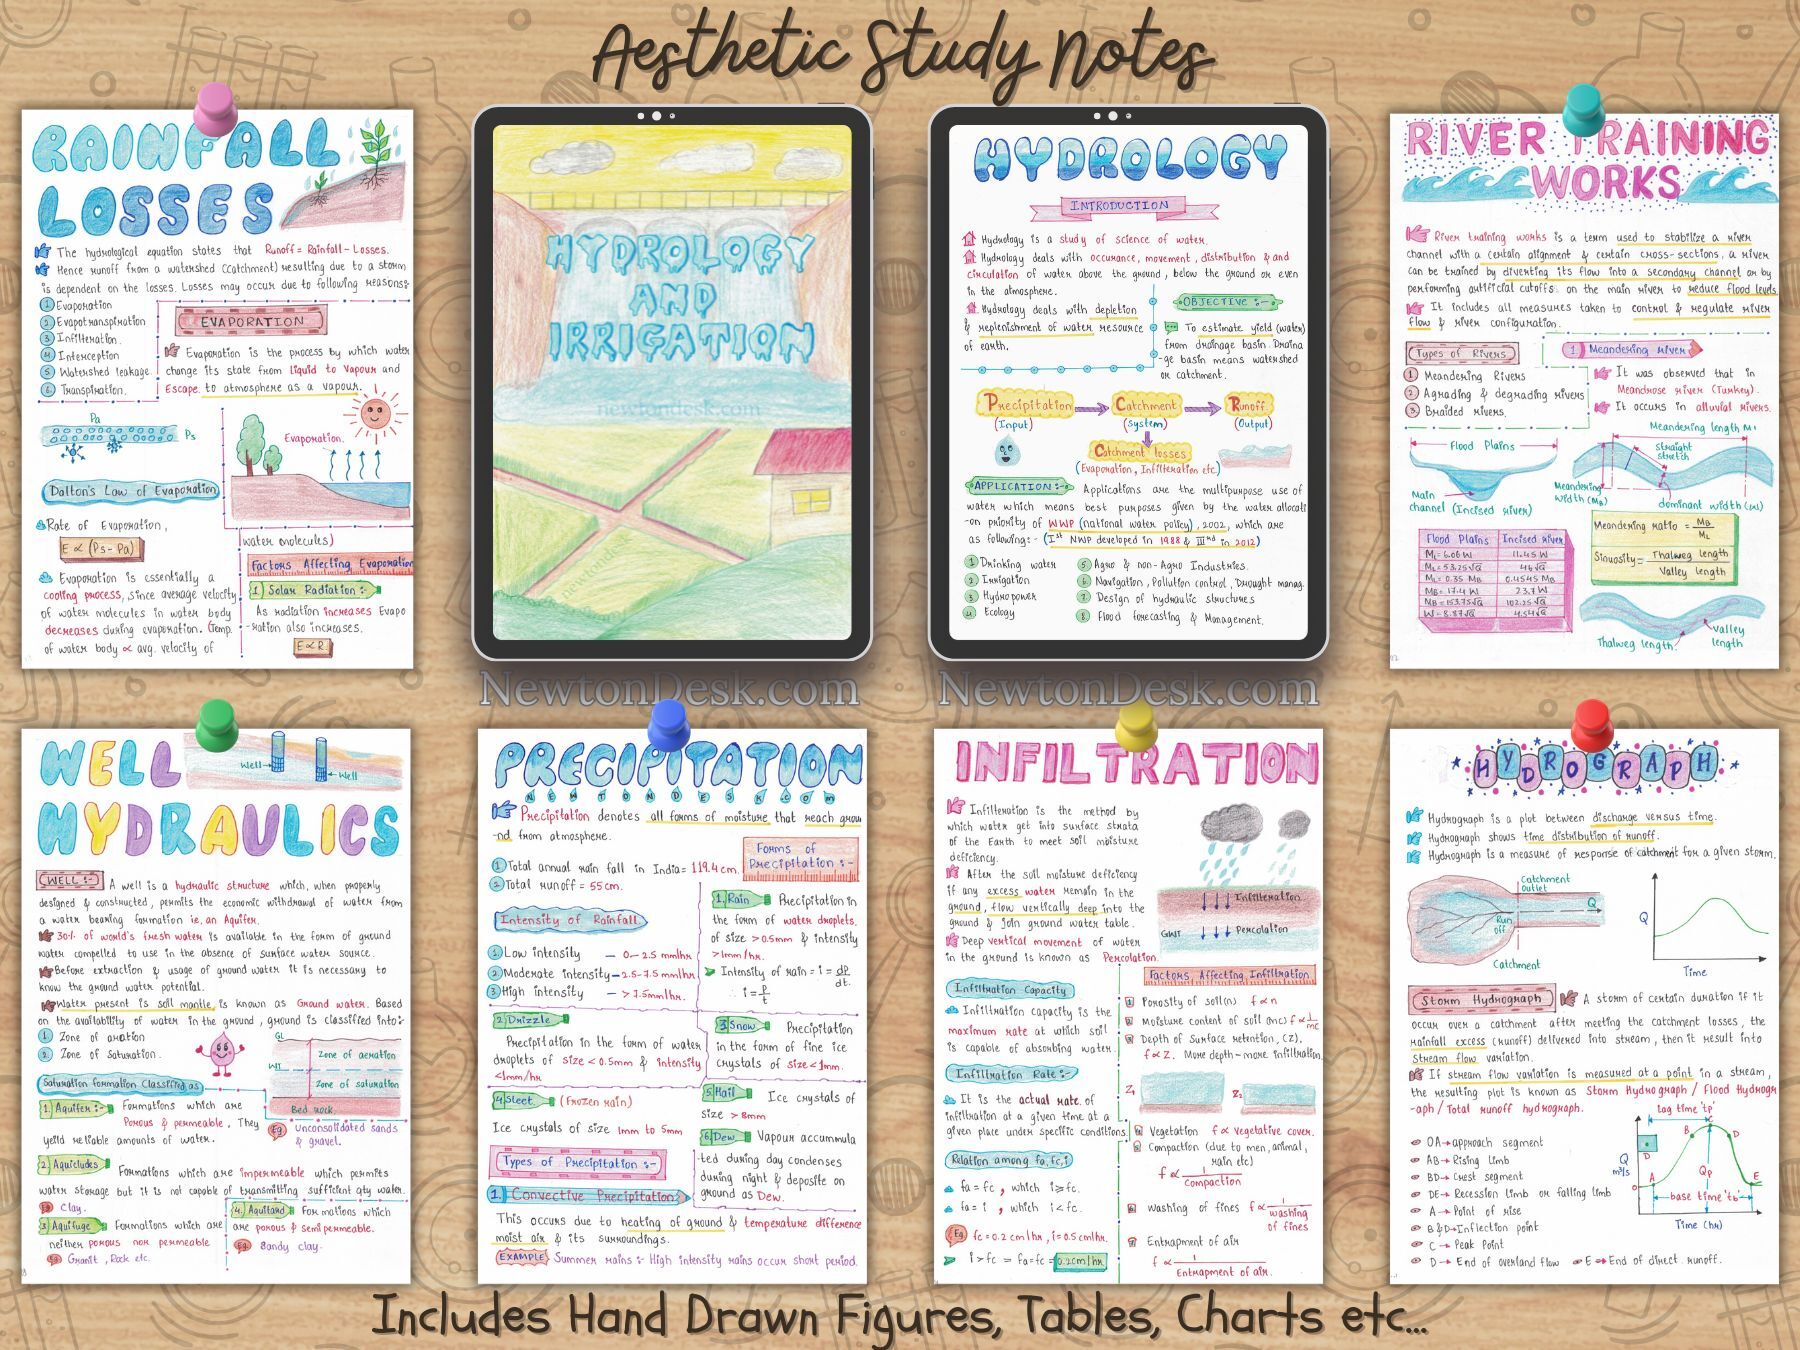 Aesthetic Study Notes
RAINFALL
LOSSES
The hydrological equation states that Runoff = Rainfall - Losses.
Hence runoff from a watershed (catchment) resulting due to a storm
is dependent on the losses. Losses may occur due to following reasons:
1 Evaporation
2 Evapotranspiration
3 Infilteration.
4 Interception
5 Watershed leakage.
6 Transpiration.
EVAPORATION
Evaporation is the process by which water
change its state from liquid to Vapour and
Escape to atmosphere as a vapour.
Pa
Ps
Evaporation.
Dalton's Law of Evaporation
Rate of Evaporation,
E ∝ (Ps - Pa)
Evaporation is essentially a
cooling process, since average velocity
of water molecules in water body
decreases during evaporation. (Temp.
of water body ∝ avg. velocity of
water molecules)
Factors Affecting Evaporation
1) Solar Radiation :-
As radiation increases Evapo
-ration also increases.
E ∝ R
HYDROLOGY
AND
IRRIGATION
newtondesk.com
HYDROLOGY
INTRODUCTION
Hydrology is a study of science of water.
Hydrology deals with occurance, movement, distribution & and
circulation of water above the ground, below the ground or even
in the atmosphere.
Hydrology deals with depletion
& replenishment of water resource
of earth.
OBJECTIVE :-
To estimate yield (water)
from drainage basin. Draina
-ge basin means watershed
or catchment.
Precipitation Catchment Runoff
(Input) (System) (Output)
Catchment losses
(Evaporation, Infilteration etc.)
APPLICATION :- Applications are the multipurpose use of
water which means best purposes given by the water allocati
-on priority of WWP (national water policy), 2002, which are
as following:- (Ist NWP developed in 1988 & IIIrd in 2012)
1 Drinking water
2 Irrigation
3 Hydropower
4 Ecology
5 Agro & non-Agro Industries.
6 Navigation, Pollution control, Drought manag.
7 Design of hydraulic structures
8 Flood forecasting & Management.
RIVER TRAINING
WORKS
River training works is a term used to stabilize a river
channel with a certain alignment & certain cross-sections, a river
can be trained by diverting its flow into a secondary channel or by
performing artificial cutoffs on the main river to reduce flood levels.
It includes all measures taken to control & regulate river
flow & river configuration.
Types of Rivers
1 Meandering Rivers
2 Agrading & degrading rivers
3 Braided rivers.
1. Meandering river
It was observed that in
Meandrose river (Turkey).
It occurs in alluvial rivers.
Flood Plains
Main
channel (Incised river)
Meandering length ML
straight
stretch
Meandering
width (MB)
dominant width (W)
Flood Plains Incised river
ML = 6.06 W 11.45 W
ML = 53.25√Q 46√Q
ML = 0.35 MB 0.4545 MB
MB = 17.4 W 23.7 W
MB = 153.75√Q 102.25√Q
W = 8.87√Q 4.54√Q
Meandering ratio = MB
ML
Sinuosity = Thalweg length
Valley length
Thalweg length.
valley
length
NewtonDesk.com
NewtonDesk.com
WELL
HYDRAULICS
Well
Well
WELL :- A well is a hydraulic structure which, when properly
designed & constructed, permits the economic withdrawal of water from
a water bearing formation ie, an Aquifer.
30% of world's fresh water is available in the form of ground
water compelled to use in the absence of surface water source.
Before extraction & usage of ground water it is necessary to
know the ground water potential.
Water present is soil mantle, is known as Ground water. Based
on the availability of water in the ground, ground is classified into:-
1 Zone of aration
2 Zone of Saturation.
GL
WT
Zone of aeration
Zone of saturation
Bed rock.
Saturation formation Classified as
1. Aquifer :- Formations which are
Porous & permeable. They
yeild reliable amounts of water.
Eg. Unconsolidated sands
& gravel.
2) Aquicludes Formations which are impermeable which permits
water storage but it is not capable of transmitting sufficent qty water.
Eg Clay.
3 Aquifuge Formations which are
neither porous nor permeable
Eg Granit, Rock etc.
4. Aquitard Formations which
are porous & semi permeable.
Eg Sandy clay.
PRECIPITATION
NEWTONDESK.COM
Precipitation denotes all forms of moisture that reach grou
-nd from atmosphere.
1 Total annual rain fall in India = 119.4 cm.
2 Total runoff = 55 cm.
Forms of
Precipitation :-
Intensity of Rainfall.
1 Low intensity - 0-2.5 mm/hr
2 Moderate intensity - 2.5-7.5 mm/hr
3 High intensity - > 7.5mm/hr.
1. Rain Precipitation in
the form of water droplets.
of size > 0.5mm & intensity
> 1mm/hr.
Intensity of rain = i = dp
dt.
∴ i = P
t
2 Drizzle
Precipitation in the form of water
droplets of size < 0.5mm & intensity
<1mm/hr
3 Snow Precipitation
in the form of fine ice
crystals of size < 1mm.
4 Sleet (Frozen rain)
Ice crystals of size 1mm to 5mm
5 Hail Ice crystals of
size > 8mm
6. Dew Vapour accummula
-ted during day condenses
during night & deposite on
ground as Dew.
Types of Precipitation :-
1. Convective Precipitation
This occurs due to heating of ground & temperature difference
moist air & its surroundings.
EXAMPLE Summer rains :- High intensity rains occur short period.
INFILTRATION
Infilteration is the method by
which water get into surface strata
of the Earth to meet soil moisture
deficiency.
After the soil moisture deficiency
if any excess water remain in the
ground, flow vertically deep into the
ground & join ground water table.
Deep vertical movement of water
in the ground is known as Percolation.
Infilteration
GWT
Percolation.
Infiltration Capacity
Infiltration capacity is the
maximum rate at which soil
is capable of absorbing water
Infiltration Rate :-
It is the actual rate of
infiltration at a given time at a
given place under specific conditions.
Relation among fa, fc, i
fa = fc , which i ≥ fc.
fa = i , which i < fc.
Eg. fc = 0.2 cm/hr, i = 0.5 cm/hr.
i > fc = fa = fc = 0.2cm/hr
Factors, Affecting Infiltration
Porosity of soil (n) f ∝ n
Moisture content of soil (mc) f ∝ 1
mc
Depth of Surface retention, (Z).
f ∝ Z. More depth - more infiltration.
Z1
Z2
Vegetation f ∝ vegetative cover.
Compaction (due to men, animal,
rain etc)
f ∝ 1
compaction
washing of fines f ∝ 1
washing
of fines
Entrapment of air
f ∝ 1
Entrapment of air.
HYDROGRAPH
Hydrograph is a plot between discharge versus time.
Hydrograph shows time distribution of runoff.
Hydrograph is a measure of response of catchment for a given storm.
Catchment
outlet
Q
Run
off
Catchment
Q
Time
Storm Hydrograph A storm of certain duration if it
occur over a catchment after meeting the catchment losses, the
rainfall excess (runoff) delivered into stream, then it result into
stream flow variation.
If stream flow variation is measured at a point in a stream,
the resulting plot is known as Storm Hydrograph / Flood Hydrogr
-aph / Total runoff hydrograph.
OA → approach segment
AB → Rising limb
BD → Crest segment
DE → Recession limb or falling limb
A → Point of rise
B & D → Inflection point
C → Peak Point
D → End of overland flow E → End of direct runoff.
Lag time 'tp'
C
B
D
D
Q
m³/s
Qp
A
E
O
base time 'tb'
Time (hr)
Includes Hand Drawn Figures, Tables, Charts etc...